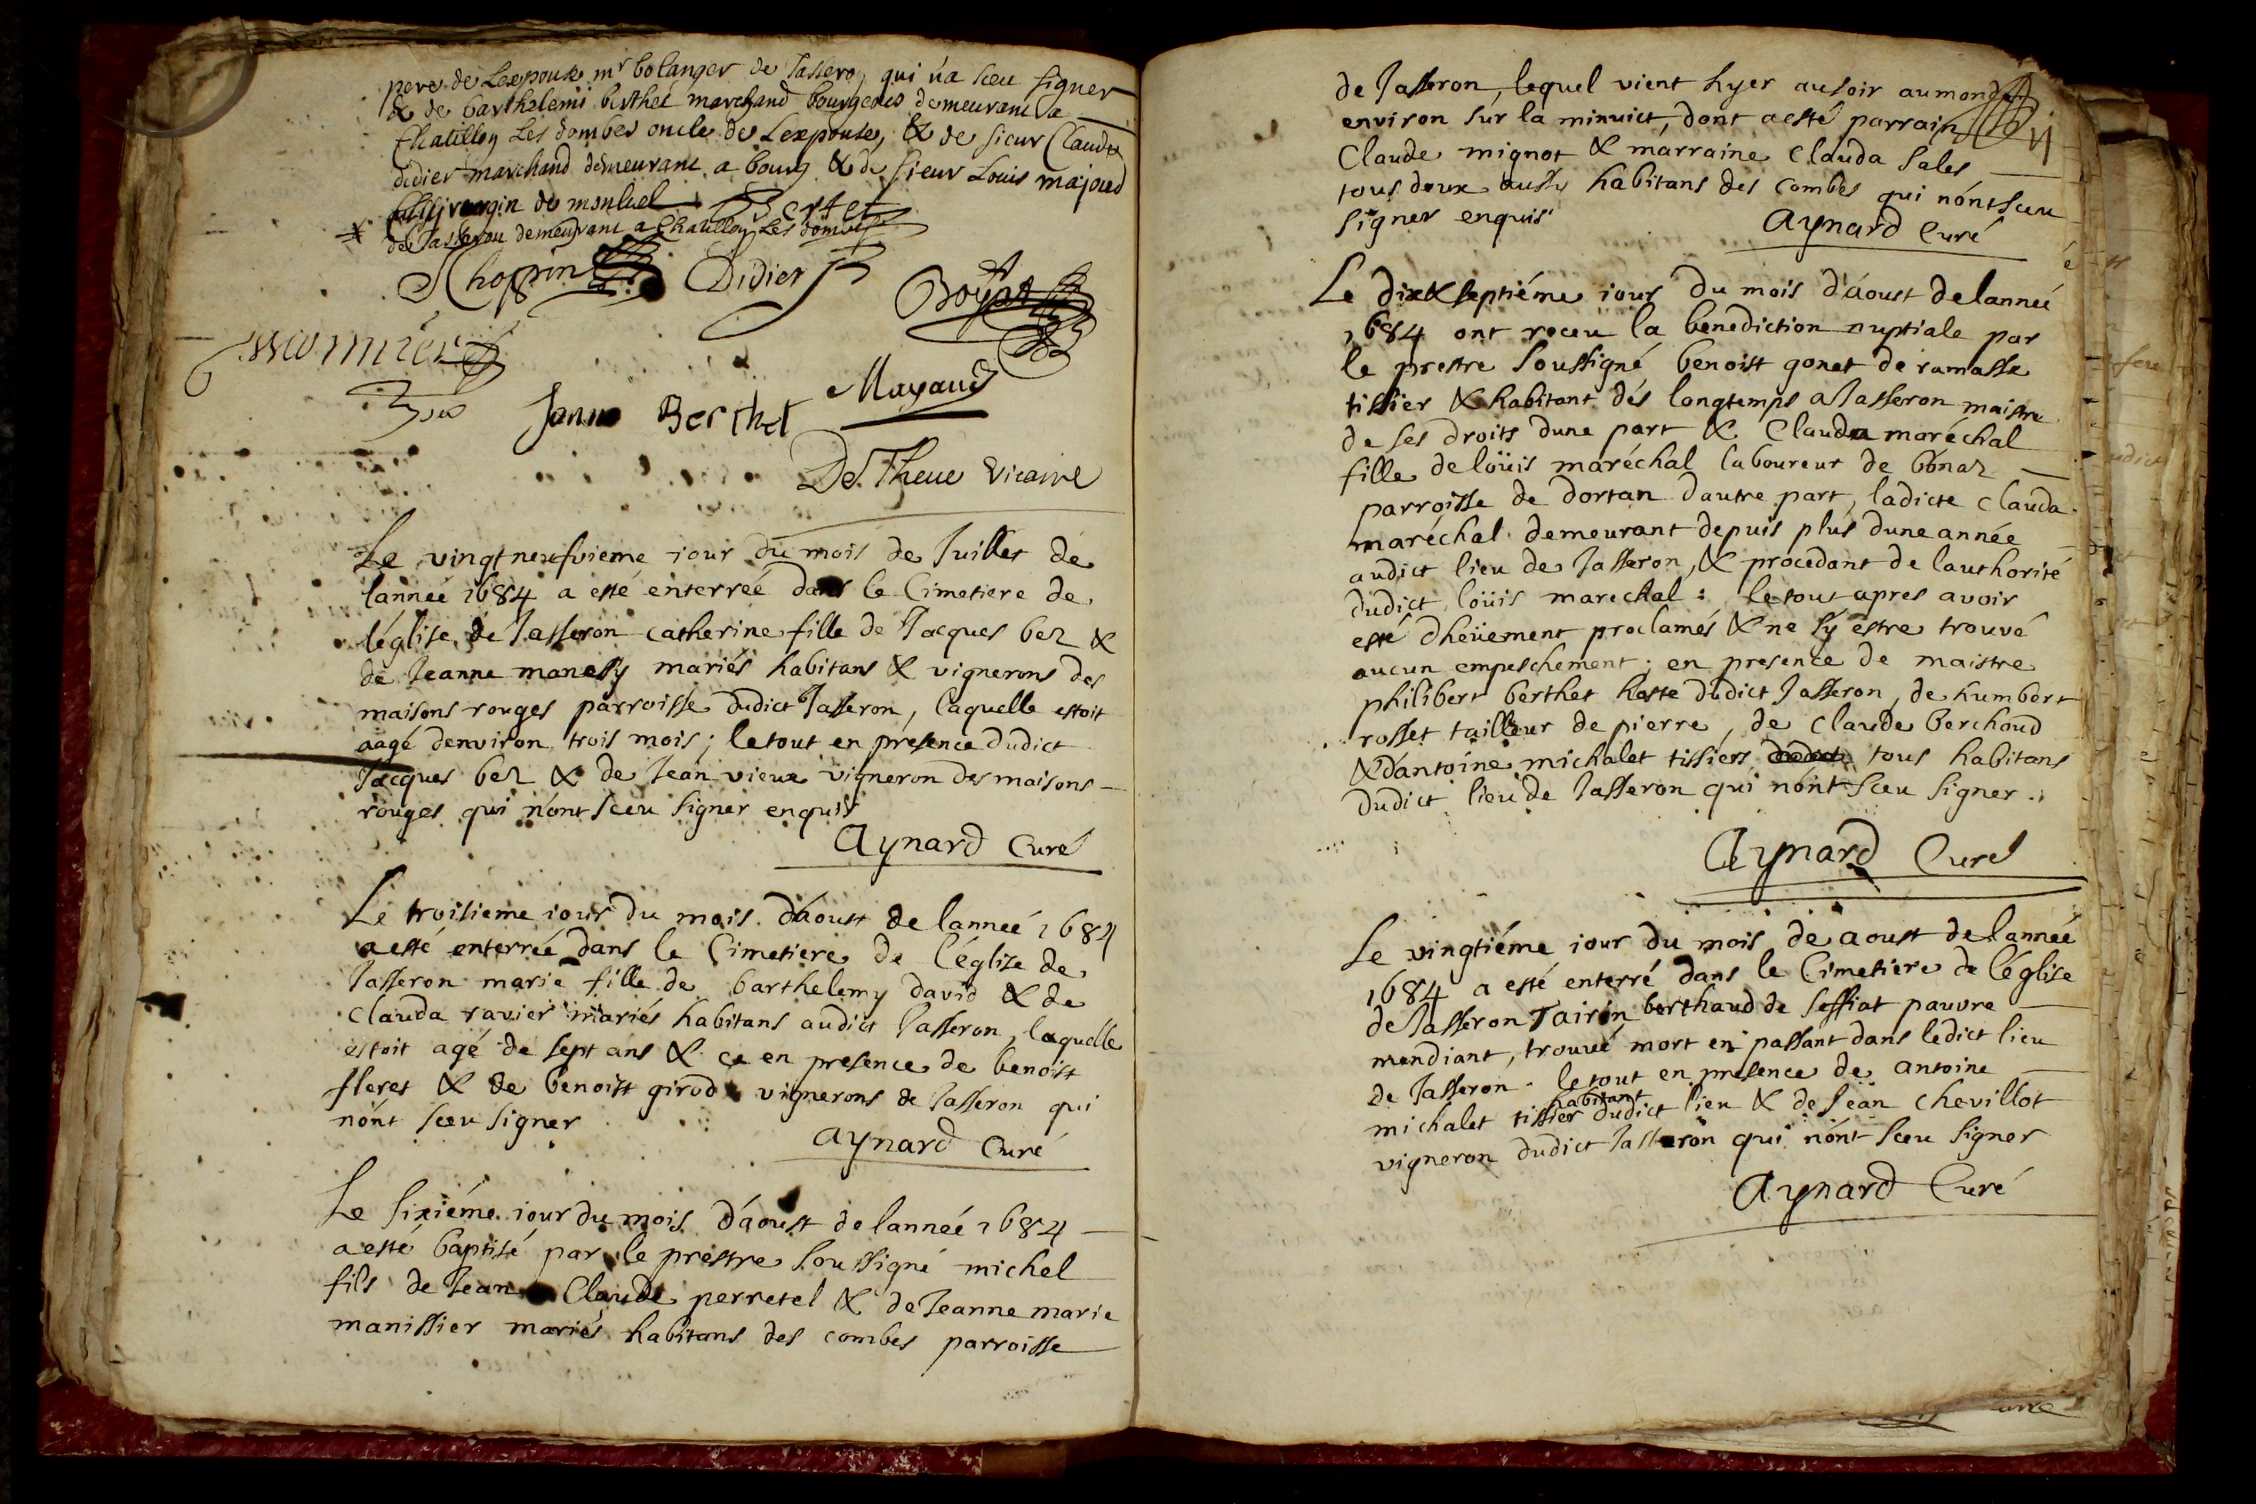 pere de Lexpouse mr bolanger de Jassero, qui n'a sceu signer
& de barthelemi berthet marchand bourgeois demeurant a
Chatillon Les dombes oncle de Lexpouse, & de sieur Claude
didier marchand demeurant a bourg & de sieur Louis majoud
de monluel
de Jasseron demeurant a Chatillon Les dombes
Choppin Didier
Jenne Berthet Mayaud
De Theue Vicaire
Le vingt neufvieme iour du mois de Juillet de
lannéé 1684 a esté enterréé dans le Cimetiere de
léglise de Jasseron catherine fille de Jacques bez &
de Jeanne manessy mariés habitans & vignerons des
maisons rouges parroisse dudict Jasseron, laquelle estoit
aagé denviron trois mois; le tout en présence dudict
Jacques bez & de Jean vieux vigneron des maisons
rouges qui nónt sceu signer enquis
Aynard Curé
Le troisieme iour du mois dáoust de lannéé 1684
a esté enterréé dans le Cimetiere de léglise de
Jasseron marie fille de barthelemy david & de
clauda ravier mariés habitans audict Jasseron, laquelle
estoit agé de sept ans & ce en presence de benoist
fleret & de benoist girod vignerons de Jasseron qui
nónt sceu signer
Aynard Curé
Le sixiéme iour du mois dáoust de lannéé 1684
a esté baptisé par le prestre soussigné michel
fils de Jean Claude perretel & de Jeanne marie
manissier mariés habitans des combes parroisse
de Jasseron, lequel vient hyer au soir au monde
environ súr la minuict, dont a esté parrain
Claude mignot & marraine Clauda sales
tous deux aussy habitans des combes qui nónt sceu
signer enquis
Aynard Curé
Le dix&septiéme iour du mois dáoust de lannéé
1684 ont receu la benediction nuptiale par
le prestre soussigné benoist gonet de ramasse
tissier & habitant dés longtemps a Jasseron maistre
de ses droits dune part & Clauda maréchal
fille de loüis maréchal laboureur de bónaz
parroisse de dortan dautre part, ladicte clauda
maréchal demeurant depuis plus dune année
audict lieu de Jasseron, & procedant de lauthorité
dudict loüis marechal: le tout apres avoir
esté dheüement proclamés & ne sy estre trouvé
aucun empeschement; en presence de maistre
philibert berthet hoste dudict Jasseron, de humbert
rosset tailleur de pierre, de claude berchoud
& dantoine michalet tissiers tous habitans
dudict lieu de Jasseron qui nónt sceu signer.
Aynard Curé
Le vingtiéme iour du mois de aoust de lannéé
1684 a esté enterré dans le Cimetiere de léglise
de Jasseron berthaud de seffiat pauvre
mendiant, trouvé mort en passant dans ledict lieu
de Jasseron. le tout en presence de antoine
habitant
michalet tissier dudict lieu & de Jean chevillot
vigneron dudict Jasseron qui nónt sceu signer
Aynard Curé